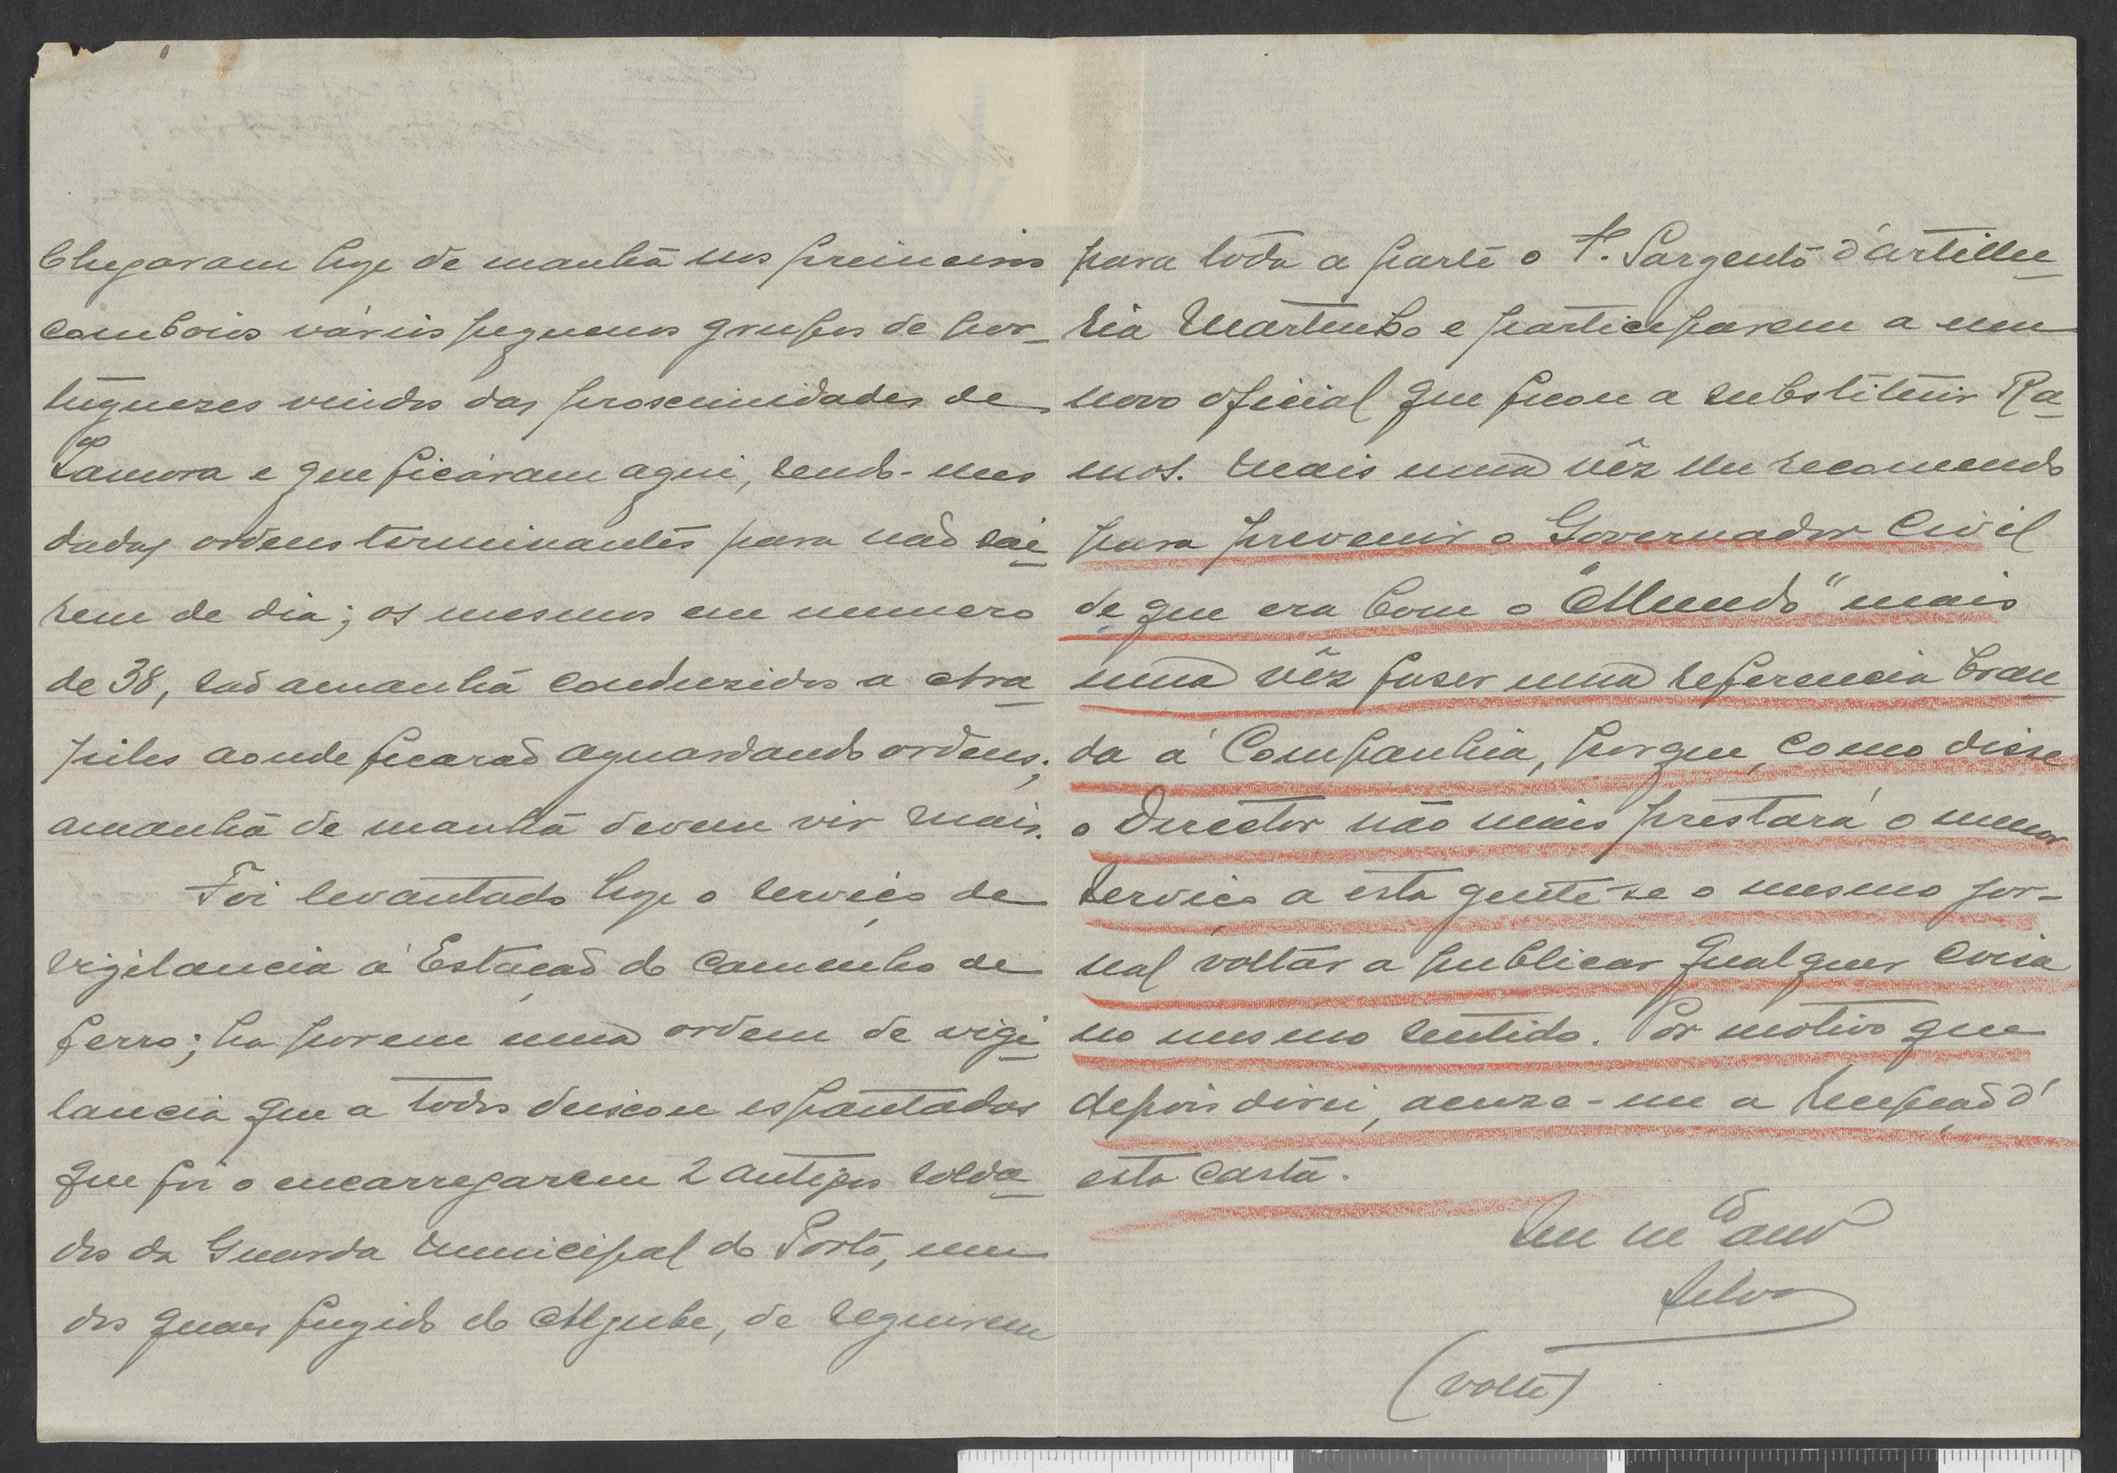 Chegaram hoje de manhã nos primeiros
comboios vários pequenos grupos de por-
tuguezes vindos das proximidades de
Zamora e que ficáram aqui, sendo-mes
dadas ordens terminantes para não sai
rem de dia; os mesmos em numero
de 38, são amanhã conduzidos a Ara
piles aonde ficarão aguardando ordens;
amanhã de manhã devem vir mais.
Foi levantado hoje o serviço de
vigilancia á Estação do caminho de
ferro; ha porem uma ordem de vigi
lancia que a todos deixou espantados
que foi o encarregarem 2 antigos solda
dos da Guarda Municipal do Porto, um
dos quaes fugido do Aljube, de seguirem
para toda a parte o 1º. Sargento d'artilhe
ria Martinho e participarem a um
novo oficial que ficou a substituir Ra
mos. Mais uma vêz me recomendo
para prevenir o Governador Civil
de que era bom o "Mundo" mais
uma vêz faser uma referencia bran
da á Companhia, porque, como disse
o Director não mais prestará o menor
serviço a esta gente se o mesmo jor-
nal voltar a publicar qualquer coisa
no mesmo sentido. Por motivo que
depois direi, acuze-me a recepção d'
esta carta.
Silva
(volte)